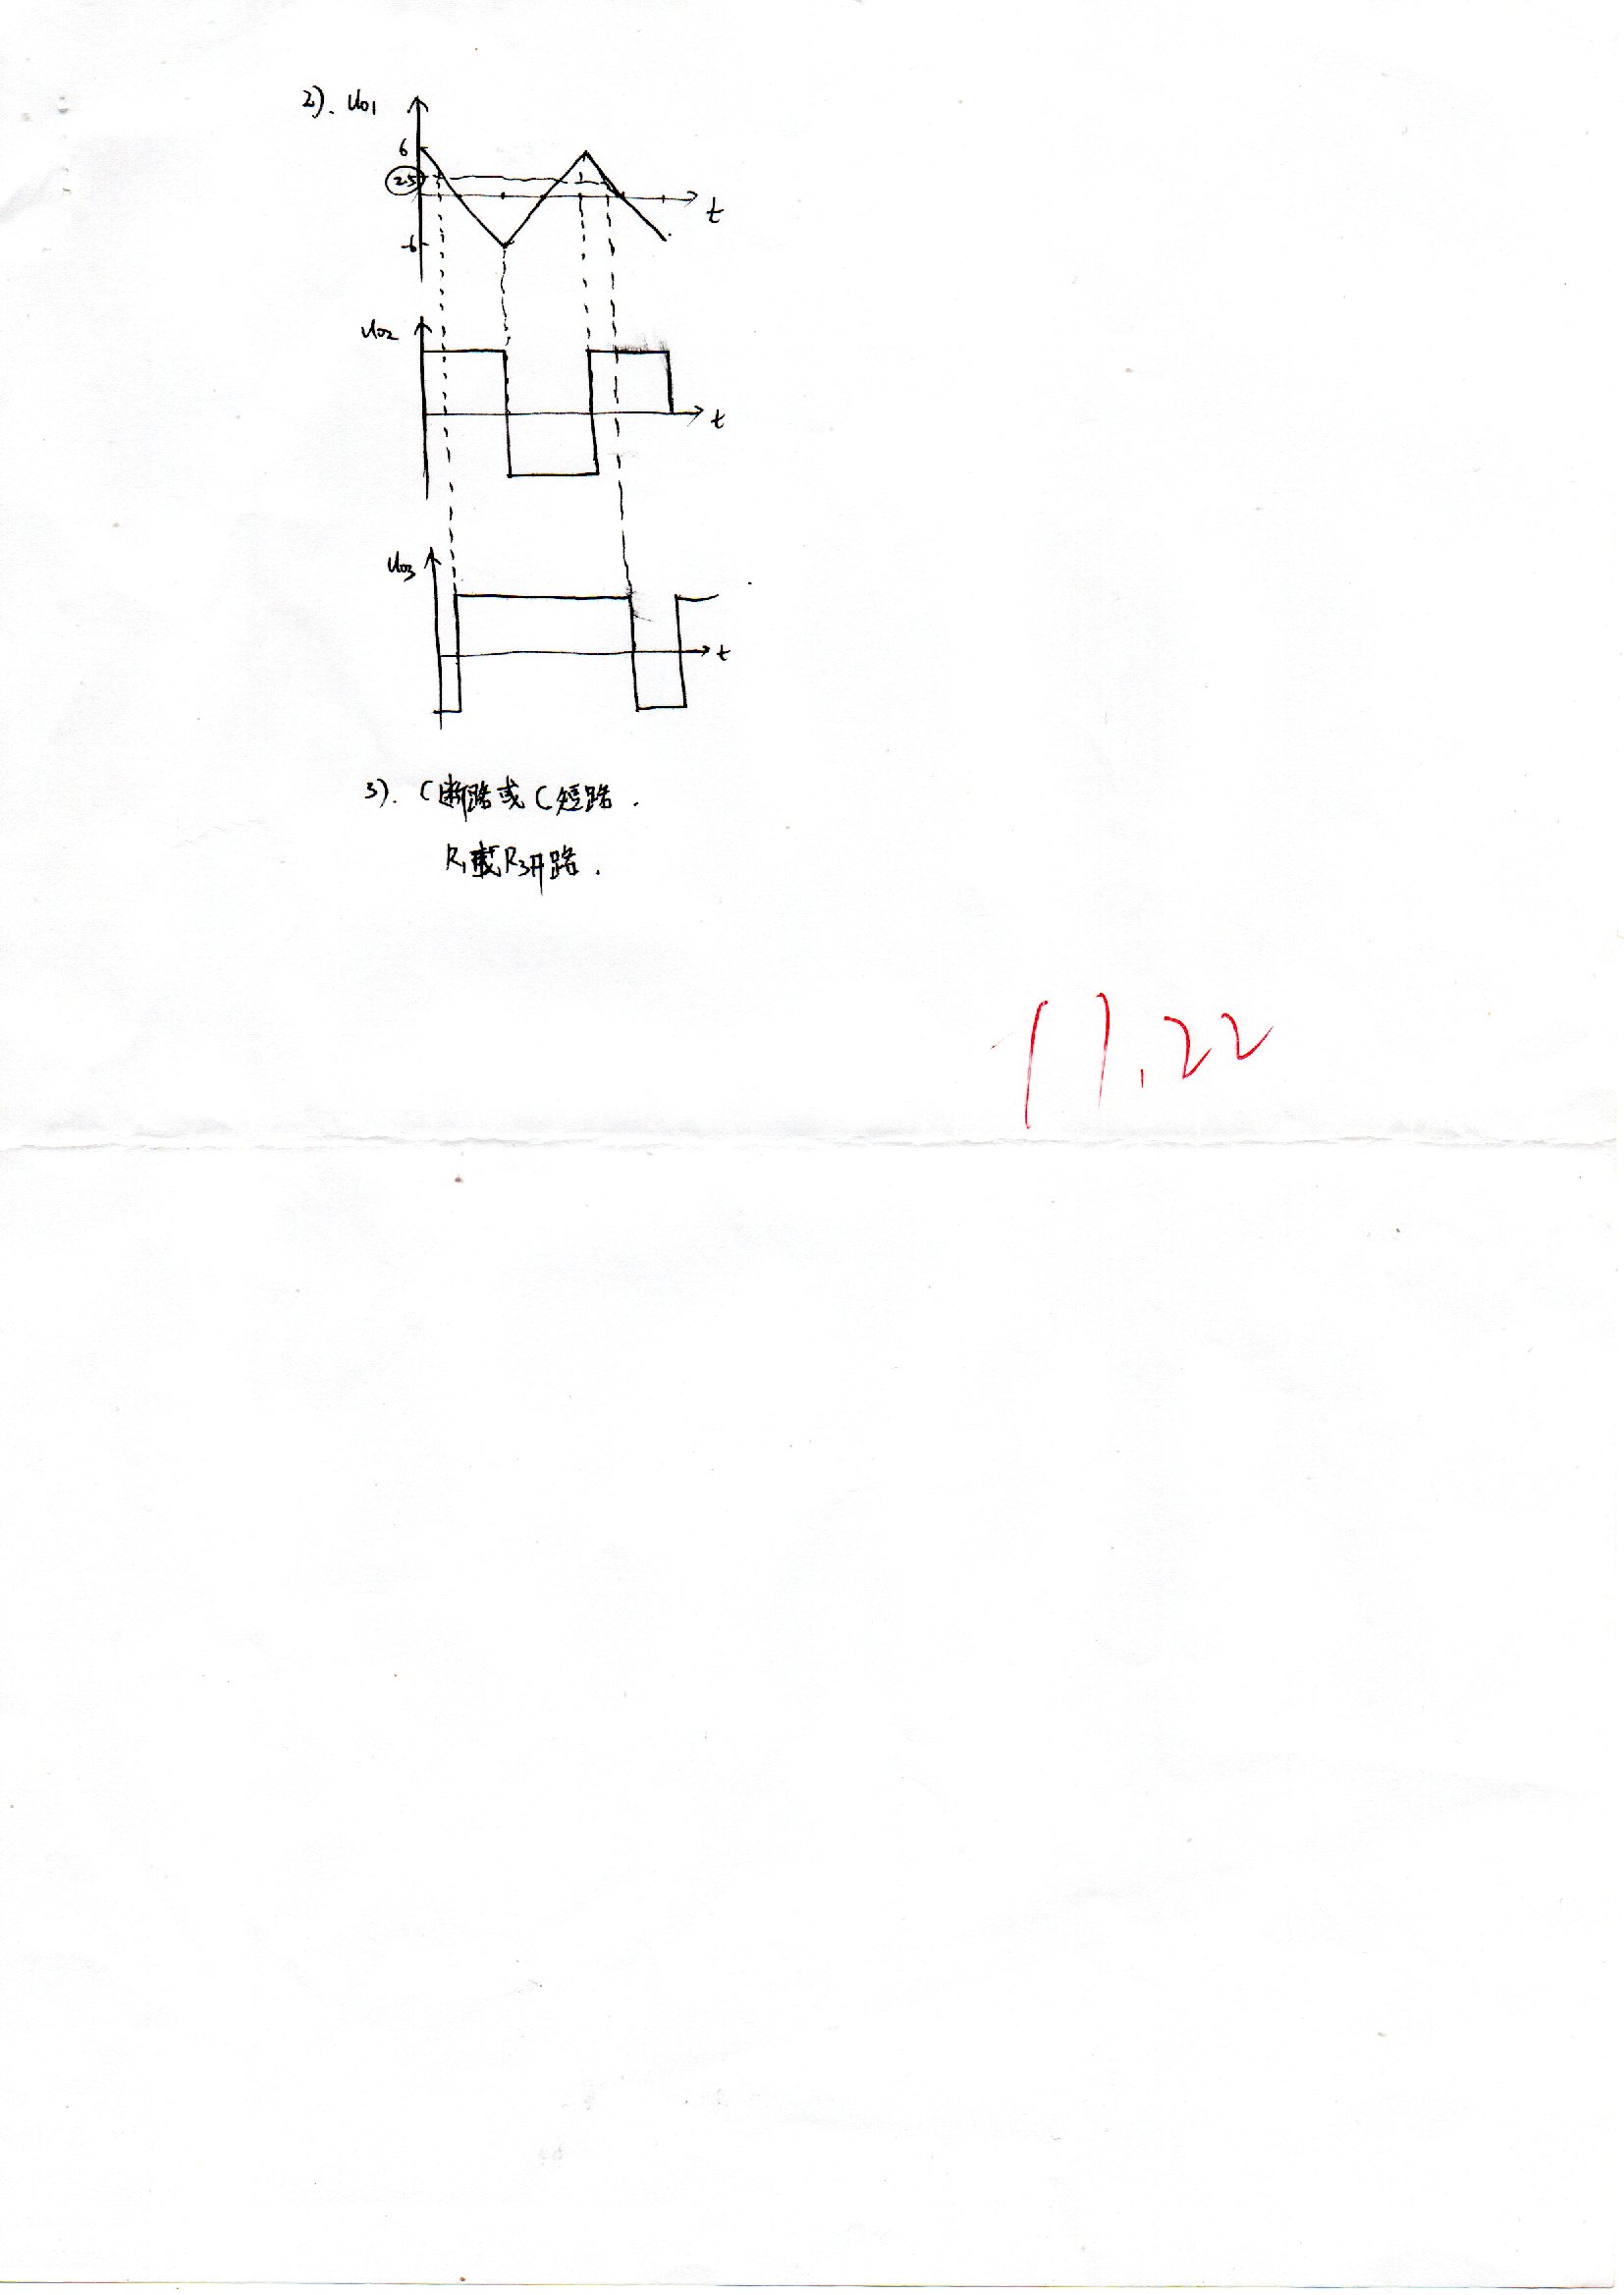 2). u01
6
2.5
-6
t
u02
t
u03
t
3). C断路或C短路.
R1或R3开路.
11.22